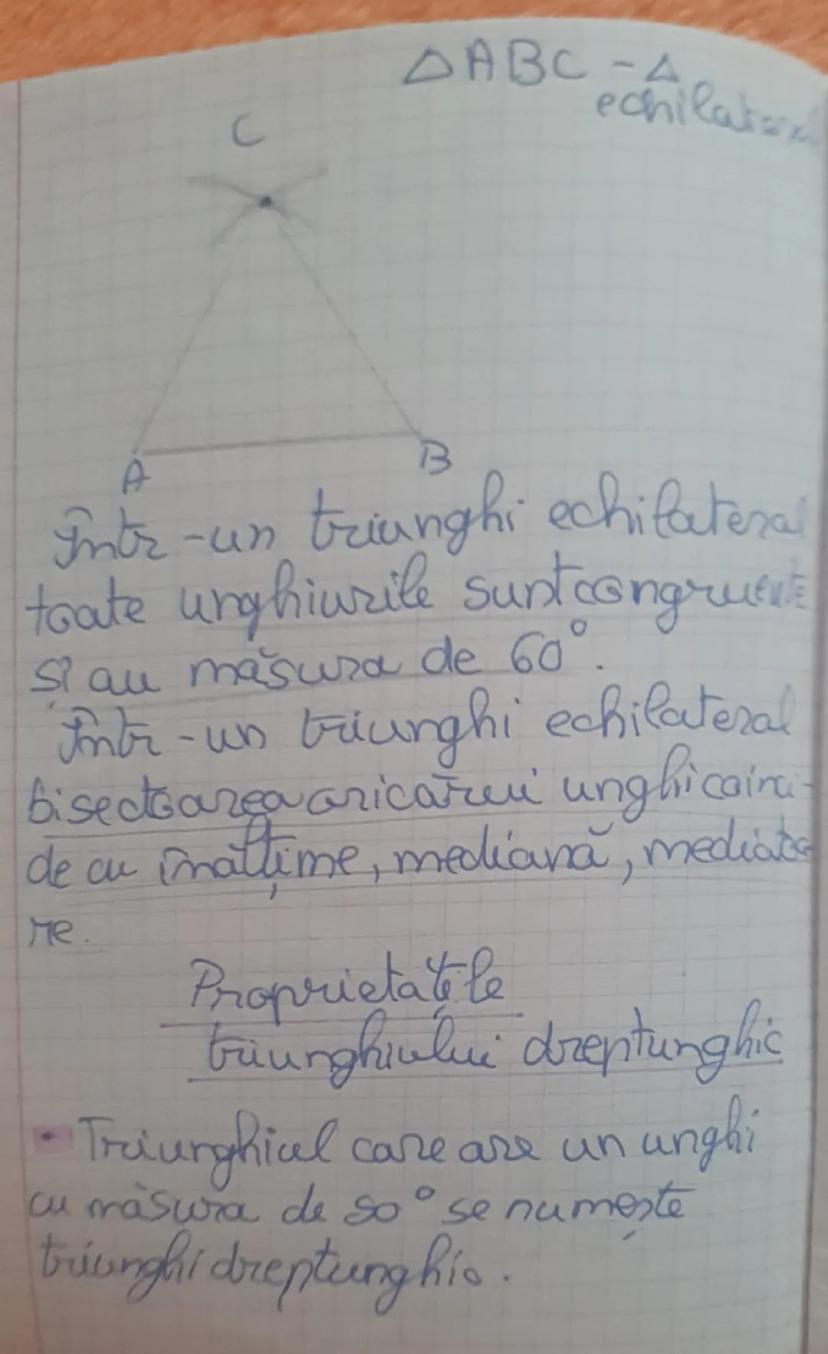 △ABC - △
echilateral
C
A
B
Într-un triunghi echilateral
toate unghiurile sunt congruente
și au măsura de 60°.
Într-un triunghi echilateral
bisectoarea oricărui unghi coinci-
de cu înălțime, mediană, mediatoa
re.
Proprietățile
triunghiului dreptunghic
• Triunghiul care are un unghi
cu măsura de 90° se numește
triunghi dreptunghic.